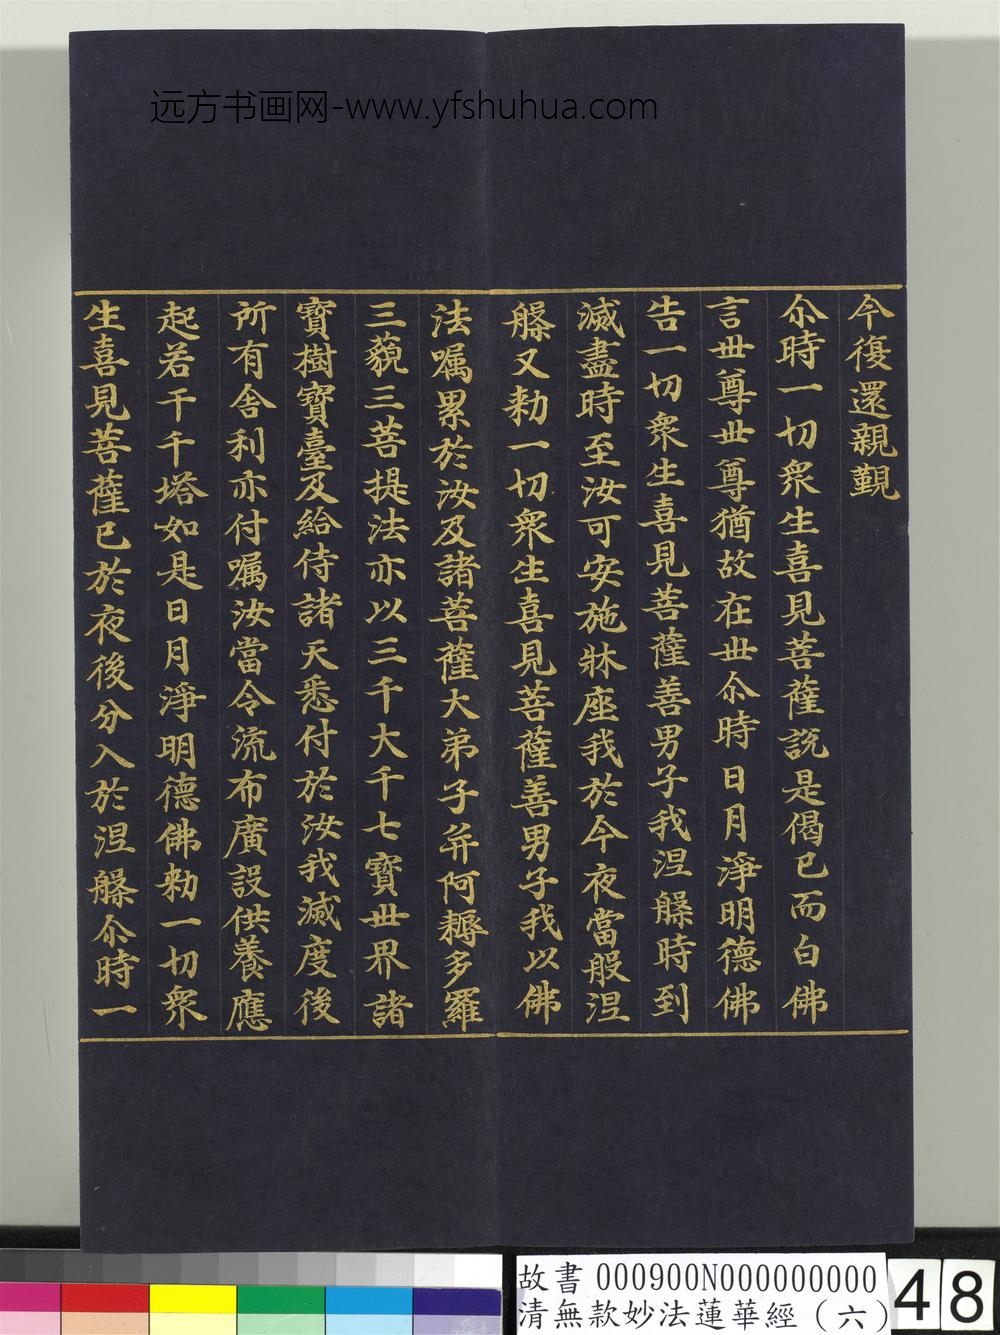 远方书画网-www.yfshuhua.com
今復還親覲
尒時一切衆生喜見菩薩說是偈已而白佛
言世尊世尊猶故在世尒時日月淨明德佛
告一切衆生喜見菩薩善男子我涅槃時到
滅盡時至汝可安施牀座我於今夜當般涅
槃又勑一切衆生喜見菩薩善男子我以佛
法囑累於汝及諸菩薩大弟子并阿耨多羅
三藐三菩提法亦以三千大千七寶世界諸
寶樹寶臺及給侍諸天悉付於汝我滅度後
所有舍利亦付囑汝當令流布廣設供養應
起若干千塔如是日月淨明德佛勑一切衆
生喜見菩薩已於夜後分入於涅槃尒時一
故書 000900N000000000
清無款妙法蓮華經（六）
48